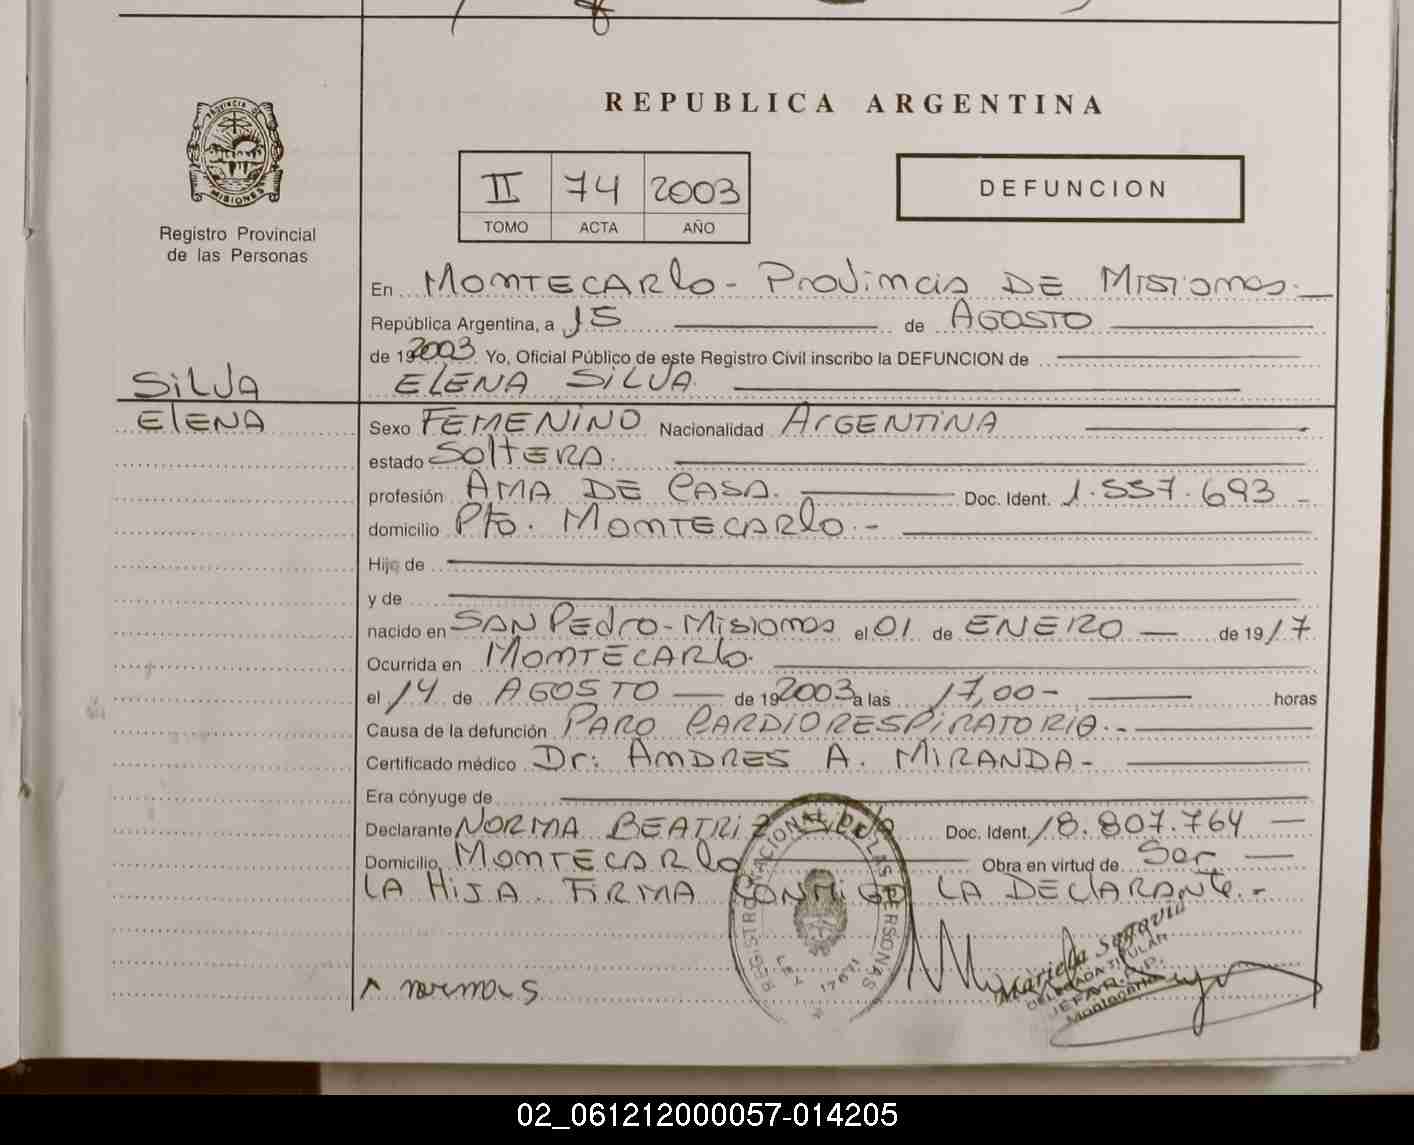 REPUBLICA ARGENTINA
PROVINCIA DE
MISIONES
Registro Provincial
de las Personas
II 74 2003
TOMO ACTA AÑO
DEFUNCION
En MONTECARLO - Provincia DE Misiones.
República Argentina, a 15 de AGOSTO
de 192003 Yo, Oficial Público de este Registro Civil inscribo la DEFUNCION de
ELENA SILVA.
SILVA
ELENA
Sexo FEMENINO Nacionalidad ARGENTINA
estado SOLTERA.
profesión AMA DE CASA. Doc. Ident. 1.557.693 -
domicilio Pto. MONTECARLO. -
Hijo de
y de
nacido en SAN PEDRO - Misiones el 01 de ENERO de 1917
Ocurrida en MONTECARLO.
el 14 de AGOSTO de 192003 a las 17,00 - horas
Causa de la defunción PARO CARDIORESPIRATORIA. -
Certificado médico Dr: ANDRES A. MIRANDA -
Era cónyuge de
Declarante NORMA BEATRIZ Doc. Ident. 18.807.764
Domicilio MONTECARLO Obra en virtud de Ser
LA HIJA. FIRMA CONMIGO LA DECLARANTE. -
REGISTRO NACIONAL DE LAS PERSONAS
LEY 17671
Mariela Segovia
DELEGADA TITULAR
Montecarlo
02_061212000057-014205